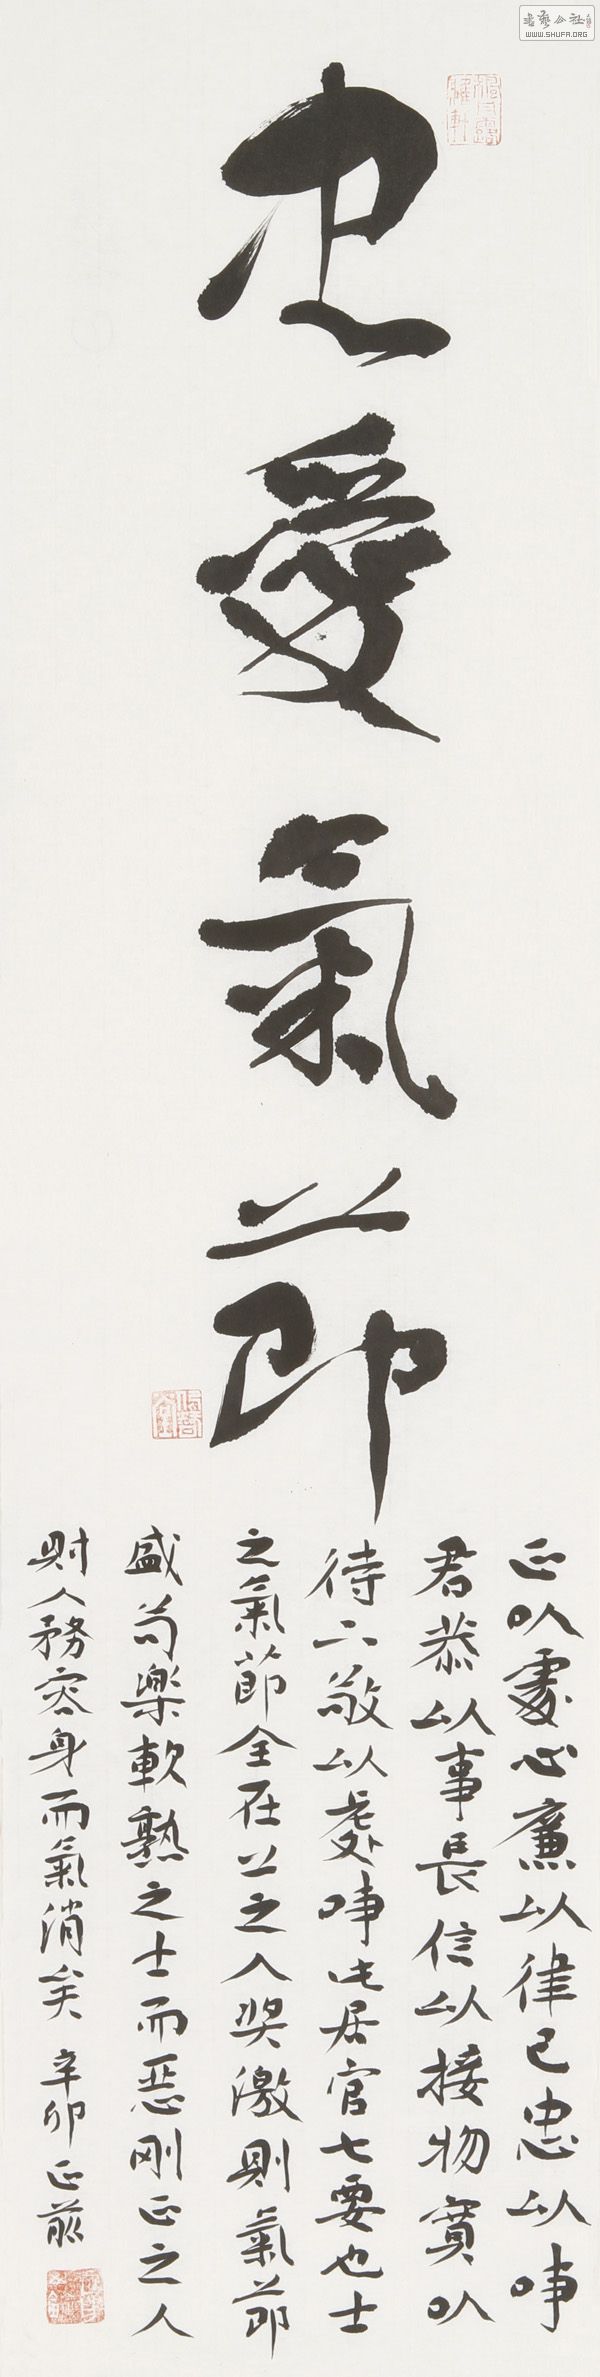 書藝公社
WWW.SHUFA.ORG
忠愛氣節
正以處心廉以律己忠以事
君恭以事長信以接物寬以
待下敬以處事此居官七要也士
之氣節全在上之人奬激則氣節
盛苟樂軟熟之士而惡剛正之人
則人務容身而氣消矣 辛卯正